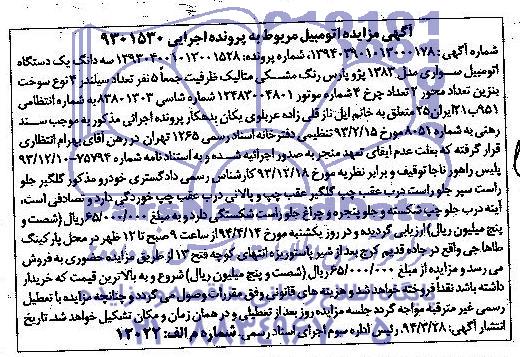 آگهی مزایده اتومبیل مربوط به پرونده اجرایی ۹۳۰۱۵۳۰
شماره آگهی: ۱۳۹۴۰۳۹۰۱۰۱۳۰۰۰۱۷۸، شماره پرونده: ۱۳۹۳۰۴۰۰۱۰۱۳۰۰۱۵۲۸ سه دانگ یک دستگاه
اتومبیل سواری مدل ۱۳۸۳ پژو پارس رنگ مشکی متالیک ظرفیت جمعاً ۵ نفر تعداد سیلندر ۴ نوع سوخت
بنزین تعداد محور ۲ تعداد چرخ ۴ شماره موتور ۱۲۴۸۳۰۰۴۸۰۱ شماره شاسی ۸۳۸۰۱۳۰۳ به شماره انتظامی
۹۵۱ب۲۱ ایران ۲۵ متعلق به خانم ایل ناز قلی زاده عربلوی یکان بدهکار پرونده اجرائی مذکور به موجب سند
رهنی به شماره ۸۰۵۱ مورخ ۹۳/۲/۱۵ تنظیمی دفترخانه اسناد رسمی ۱۲۶۵ تهران در رهن آقای بهرام انتظاری
قرار گرفته که بعلت عدم ایفای تعهد منجر به صدور اجرائیه شده و به استناد نامه شماره ۷۵۷۹۴-۹۳/۱۲/۱۰
پلیس راهور ناجا توقیف و برابر نظریه مورخ ۹۳/۱۲/۱۸ کارشناس رسمی دادگستری خودرو مذکور گلگیر جلو
راست سپر جلو راست درب عقب چپ گلگیر عقب چپ و پالانی درب عقب چپ خوردگی دارد و تصادفی است،
آینه درب جلو چپ شکسته و جلو پنجره و چراغ جلو راست شکستگی دارد و به مبلغ ۶۵/۰۰۰/۰۰۰ ریال (شصت و
پنج میلیون ریال) ارزیابی گردیده و در روز یکشنبه مورخ ۹۴/۴/۱۴ از ساعت ۹ صبح تا ۱۲ ظهر در محل پارکینگ
طاها جی واقع در جاده قدیم کرج بعد از شیر پاستوریزه انتهای کوچه فتح ۱۳ از طریق مزایده حضوری به فروش
می رسد و مزایده از مبلغ ۶۵/۰۰۰/۰۰۰ ریال (شصت و پنج میلیون ریال) شروع و به بالاترین قیمت که خریدار
داشته باشد نقداً فروخته خواهد شد و هزینه های قانونی وفق مقررات وصول می گردد و چنانچه مزایده با تعطیل
رسمی غیر مترقبه مواجه گردد جلسه مزایده روز بعد از تعطیلی و در همان زمان و مکان تشکیل خواهد شد. تاریخ
انتشار آگهی: ۹۴/۳/۲۸. رئیس اداره سوم اجرای اسناد رسمی. شماره م الف: ۱۳۰۲۲